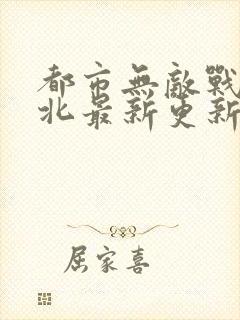 都市無敵戰
北最新更新
屈家喜